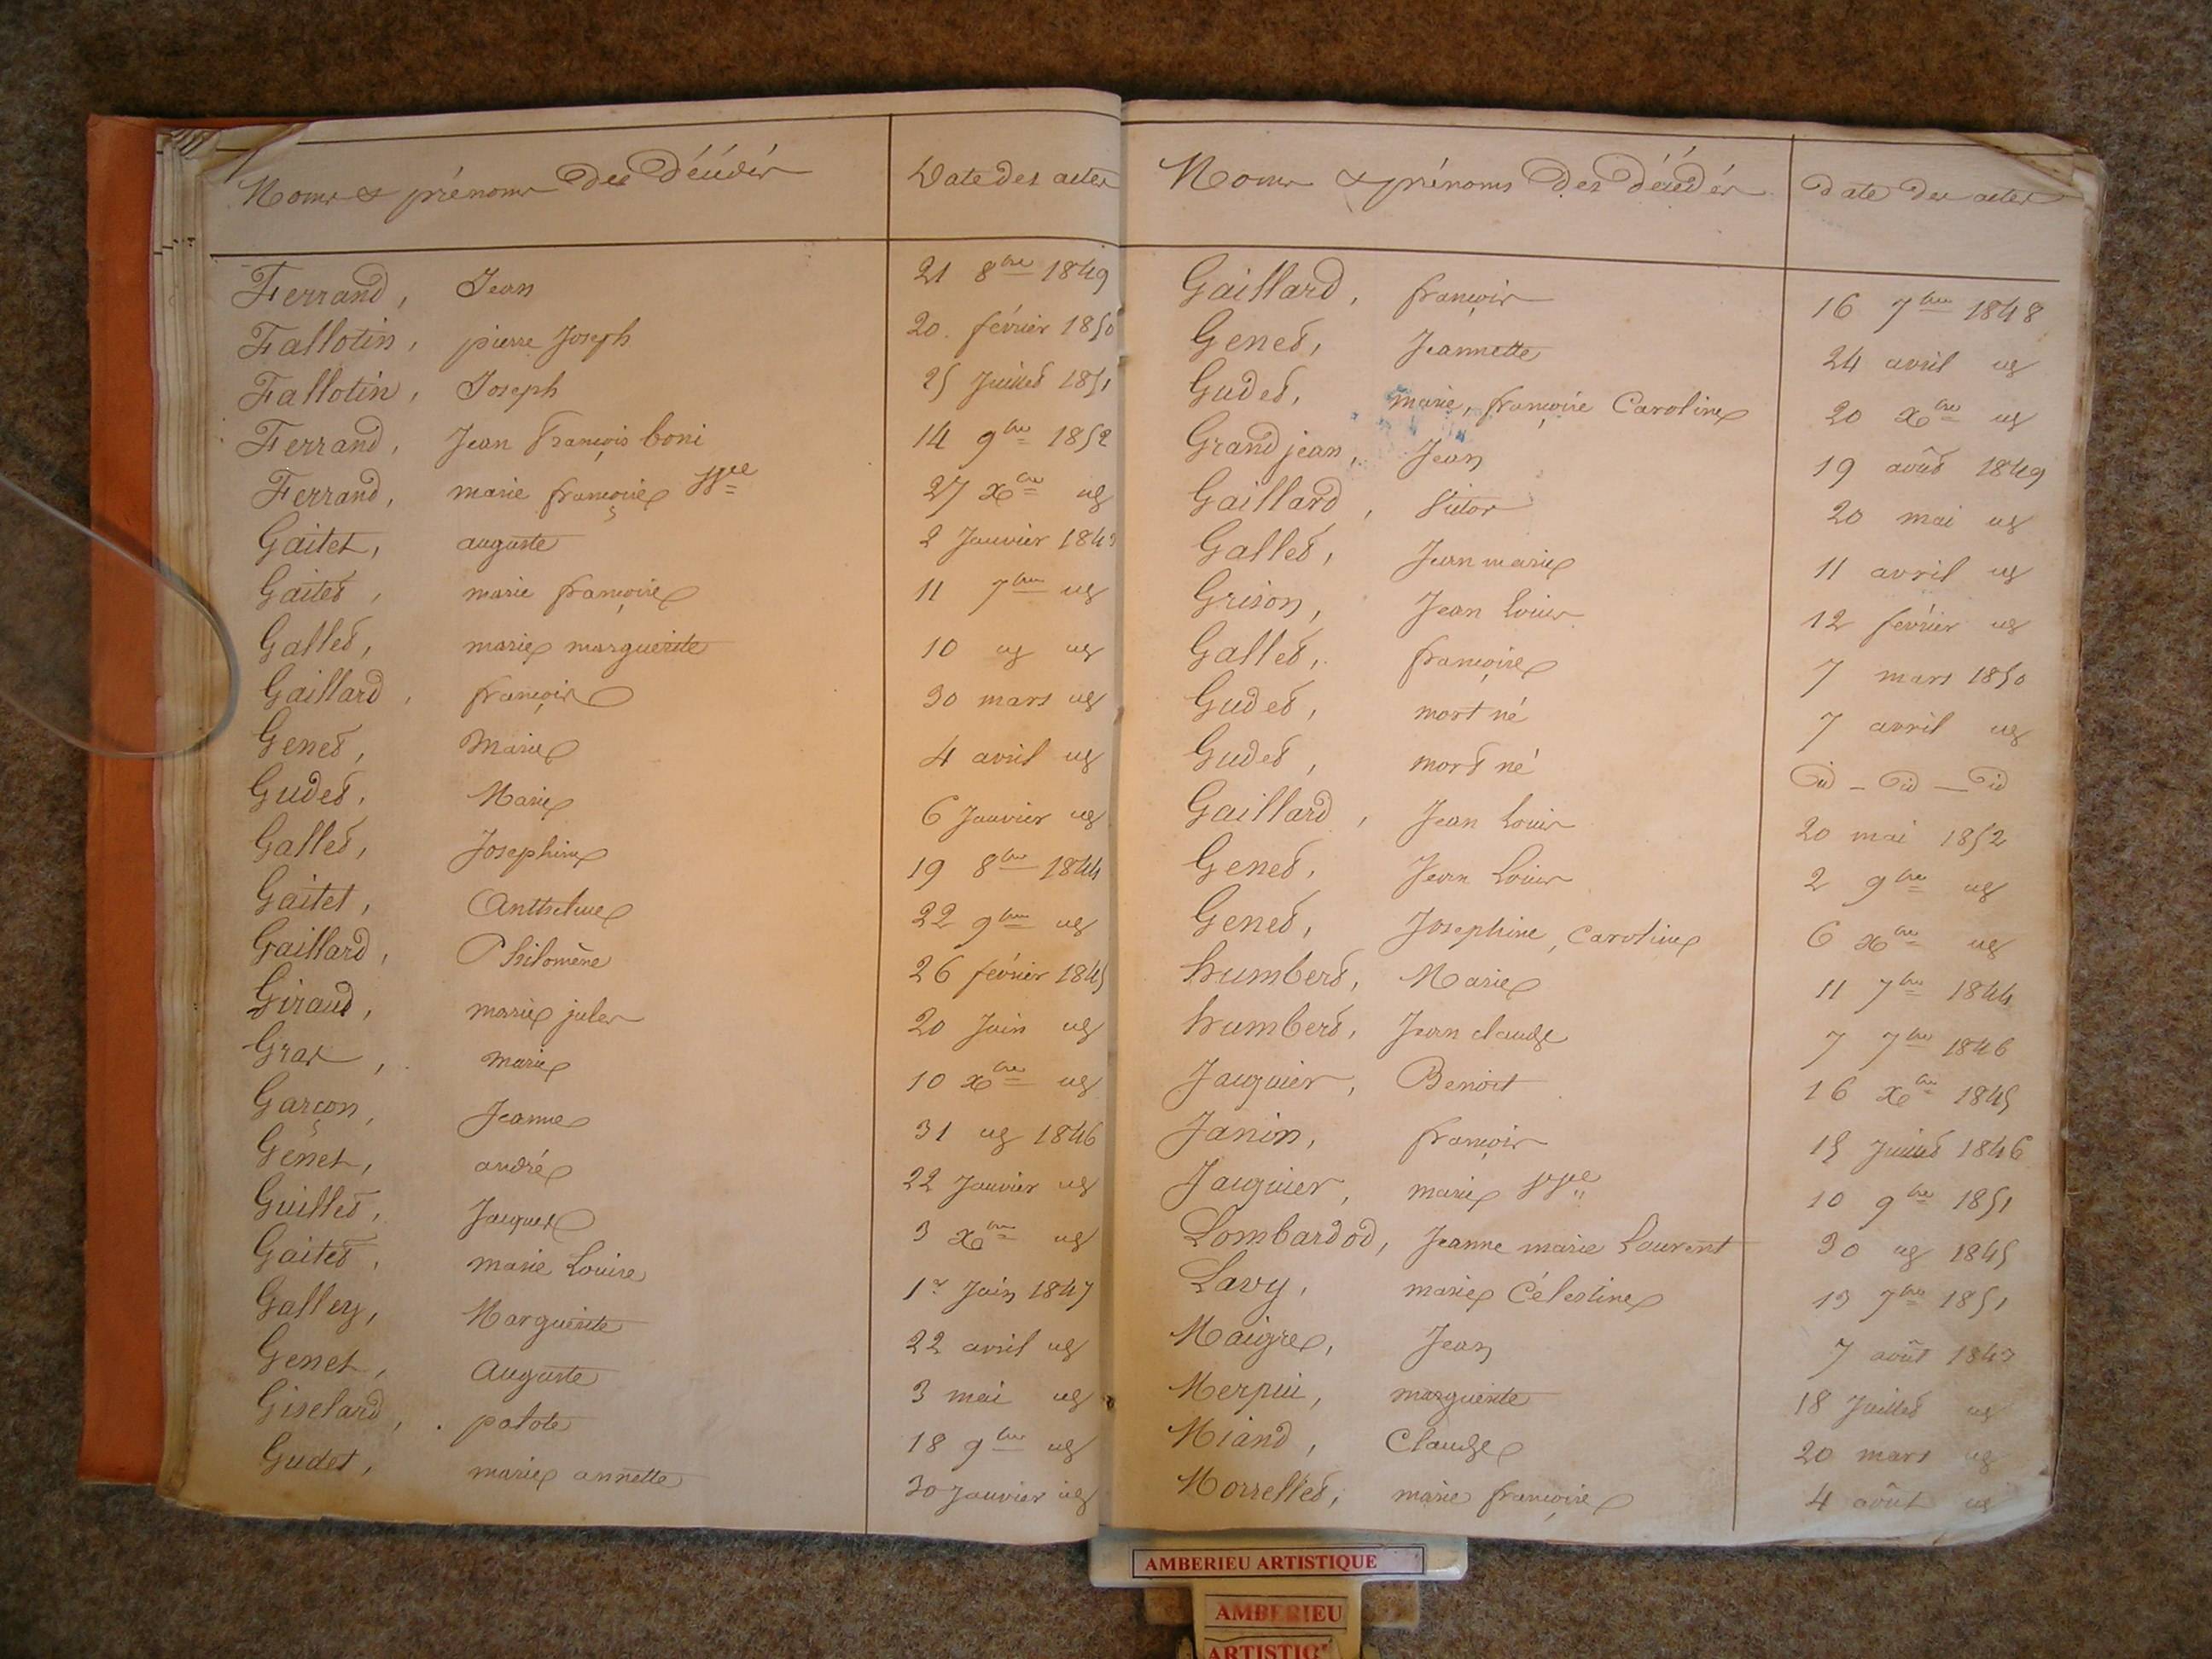 Noms & prénoms des décédés Date des actes
Ferrand, Jean 21 8bre 1849
Fallotin, pierre Joseph 20 février 1850
Fallotin, Joseph 25 Juillet 1851
Ferrand, Jean François boni 14 9bre 1852
Ferrand, marie françoise 27 xbre id
Gaitet, auguste 2 Janvier 1843
Gaitet, marie françoise 11 7bre id
Gallet, marie marguerite 10 id id
Gaillard, françois 30 mars id
Genet, Marie 4 avril id
Gudet, Marie 6 Janvier id
Gallet, Josephine 19 8bre 1844
Gaitet, Anthelme 22 9bre id
Gaillard, Philomène 26 février 1845
Giraud, marie jules 20 Juin id
Gras, Marie 10 xbre id
Garçon, Jeanne 31 id 1846
Genet, andré 22 Janvier id
Guillet, Jacques 3 xbre id
Gaitet, marie Louise 1er Juin 1847
Galley, Marguerite 22 avril id
Genet, Auguste 3 mai id
Giselard, palote 18 9bre id
Gudet, marie annette 30 Janvier id
Noms & prénoms des décédés date des actes
Gaillard, françois 16 7bre 1848
Genet, Jeannette 24 avril id
Gudet, marie, françoise Caroline 20 xbre id
Grandjean, Jean 19 août 1849
Gaillard, Victor 20 mai id
Gallet, Jean marie 11 avril id
Grison, Jean Louis 12 février id
Gallet, françoise 7 mars 1850
Gudet, mort né 7 avril id
Gudet, mort né id - id - id
Gaillard, Jean Louis 20 mai 1852
Genet, Jean Louis 2 9bre id
Genet, Josephine, Caroline 6 xbre id
humbert, Marie 11 7bre 1844
humbert, Jean claude 7 7bre 1846
Jaquier, Benoit 16 xbre 1845
Janin, françois 15 Juillet 1846
Jaquier, marie 10 9bre 1851
Lombardod, Jeanne marie Laurent 30 id 1845
Lavy, marie Célestine 13 7bre 1851
Maigre, Jean 7 août 1843
Merpui, marguerite 18 Juillet id
Miand, Claude 20 mars id
Morrellet, marie françoise 4 août id
AMBERIEU ARTISTIQUE
AMBERIEU
ARTISTIQ